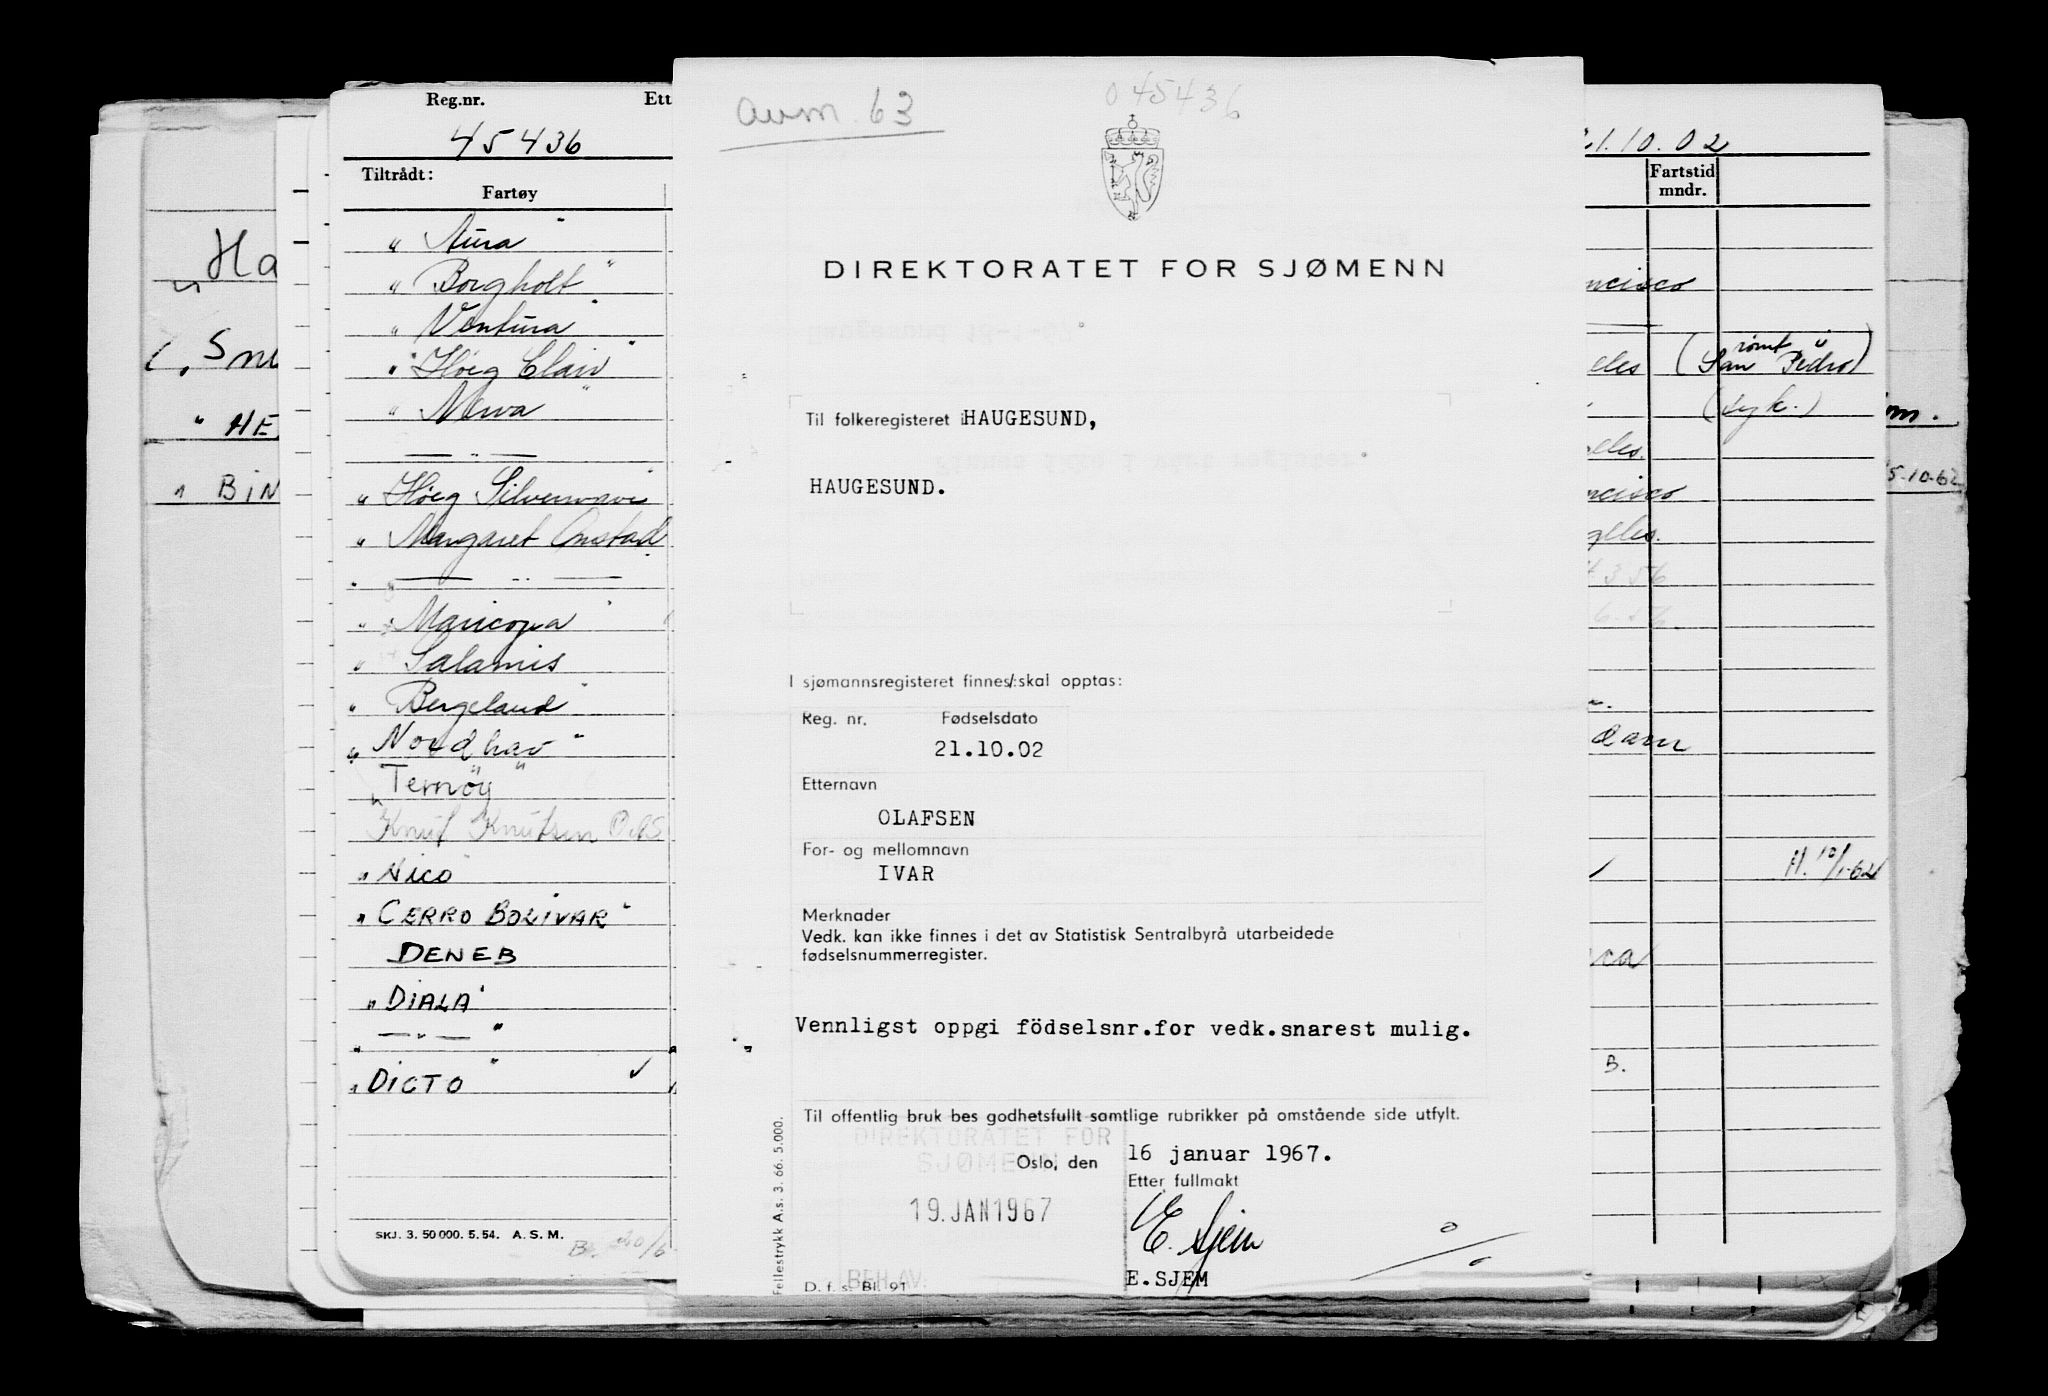 Reg.nr. Ett
45436
Tiltrådt:
Fartøy
" Aura "
" Borgholt "
" Ventura "
" Höeg Clair "
" Merva "
— " —
" Höeg Silverwave
" Margaret Onstad
" — " —
" Maricopa "
" Salamis
" Bergeland "
" Nordhav "
" Ternöy "
Knut Knutsen O.A.S
" Nico
" CERRO BOLIVAR "
DENEB
" DIALA "
" — " — "
" DICTO " ✓
SKJ. 3. 50 000. 5. 54. A. S. M.
Ha
Sne
" HE
" BIN
avm. 63
045436
DIREKTORATET FOR SJØMENN
Til folkeregisteret i HAUGESUND,
HAUGESUND.
I sjømannsregisteret finnes/:skal opptas:
Reg. nr. Fødselsdato
21.10.02
Etternavn
OLAFSEN
For- og mellomnavn
IVAR
Merknader
Vedk. kan ikke finnes i det av Statistisk Sentralbyrå utarbeidede
fødselsnummerregister.
Vennligst oppgi födselsnr.for vedk.snarest mulig.
Til offentlig bruk bes godhetsfullt samtlige rubrikker på omstående side utfylt.
DIREKTORATET FOR
SJØMENN
Oslo, den 16 januar 1967.
Etter fullmakt
19.JAN1967
E. Sjem
E.SJEM
BEH.AV:
D. f. s. Bl. 91
Fellestrykk A.s. 3. 66. 5.000.
21.10.02
Fartstid
mndr.
ncisco
eles (rømt i San Pedro)
(syk.)
geles.
ncisco
geles.
4 3 56
6.56
dam
H. 10/1-62
ca
B.
om.
5.10.62